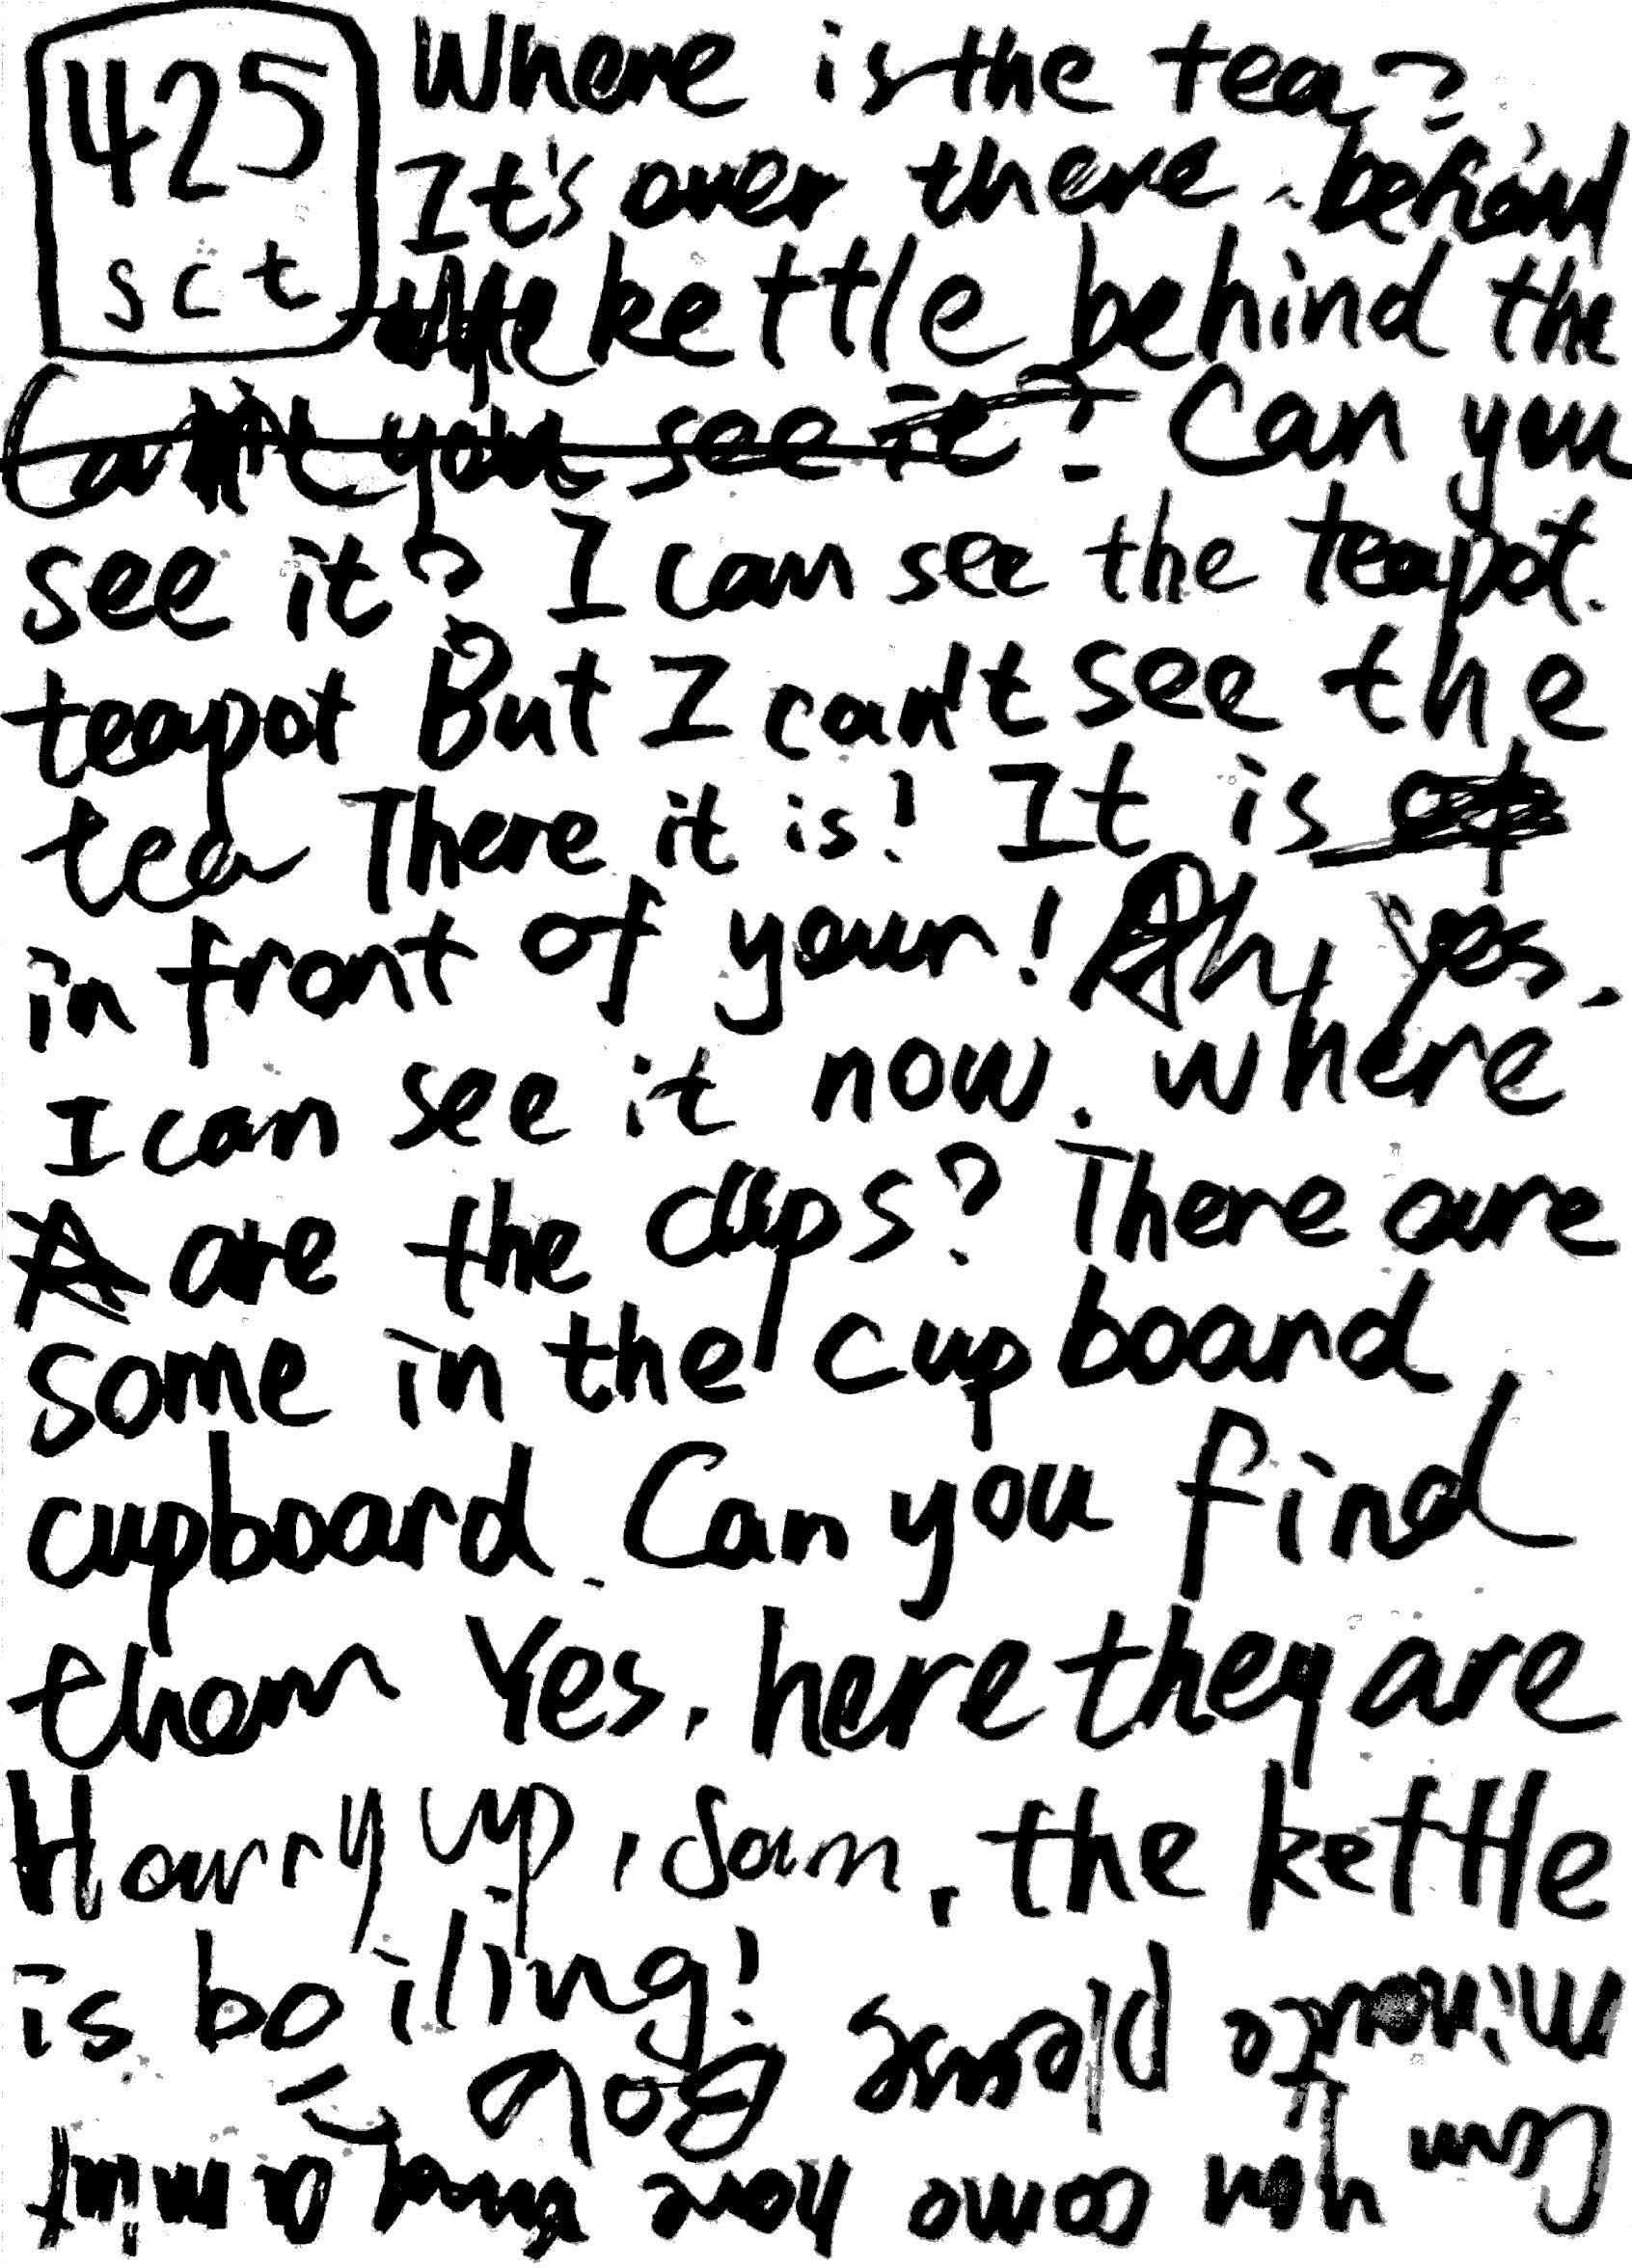 425 Where is the tea?
sct It's over there. behind
the kettle behind the
Can't you see it? Can you
see it? I can see the teapot.
teapot But I can't see the
tea There it is! It is
in front of your! Ah, yes,
I can see it now. where
are the cups? There are
some in the cupboard
cupboard. Can you find
them Yes, here they are
Hurry up, Sam, the kettle
is boiling!
Can you come here a minut
minoute please Bob